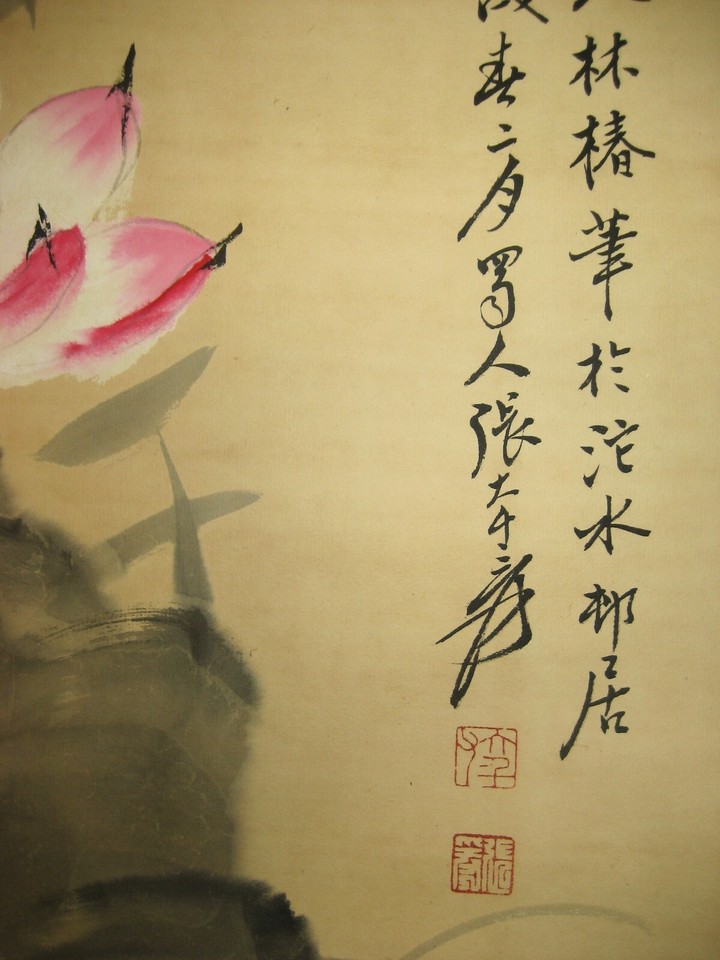 林椿筆於沱水邨居
春二月蜀人張大千爰
張爰